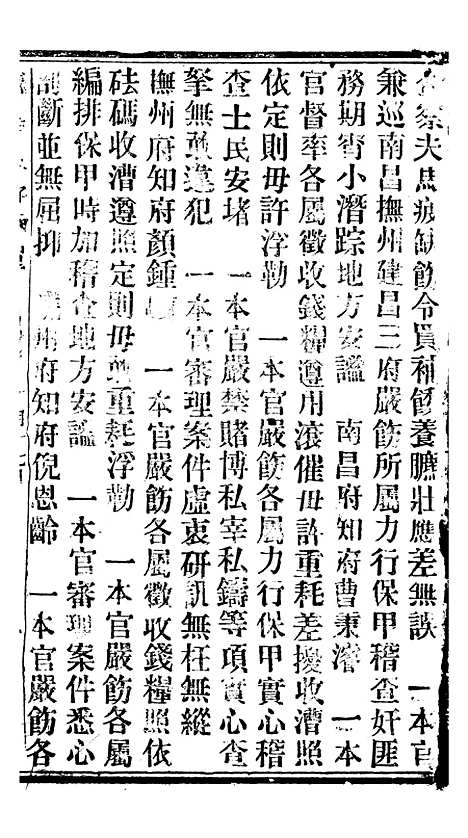 查祭夫馬疲缺飭令買補餧養臕壯應差無誤　一本官
兼巡南昌撫州建昌三府嚴飭所属力行保甲稽查奸匪
務期宵小潛踪地方安謐　南昌府知府曹秉濬　一本
官督率各屬徵收錢糧遵用滚催毋許重耗差擾收漕照
依定則毋許浮勒　一本官嚴飭各屬力行保甲實心稽
查士民安堵　一本官嚴禁賭博私宰私鑄等項實心查
拏無敢違犯　一本官審理案件虛衷研訊無枉無縱
撫州府知府顏鍾　一本官嚴飭各屬徵收錢糧照依
砝碼收漕遵照定則毋敢重耗浮勒　一本官嚴飭各屬
編排保甲時加稽查地方安謐　一本官審理案件悉心
剖斷並無屈抑　州府知府倪恩齡　一本官嚴飭各